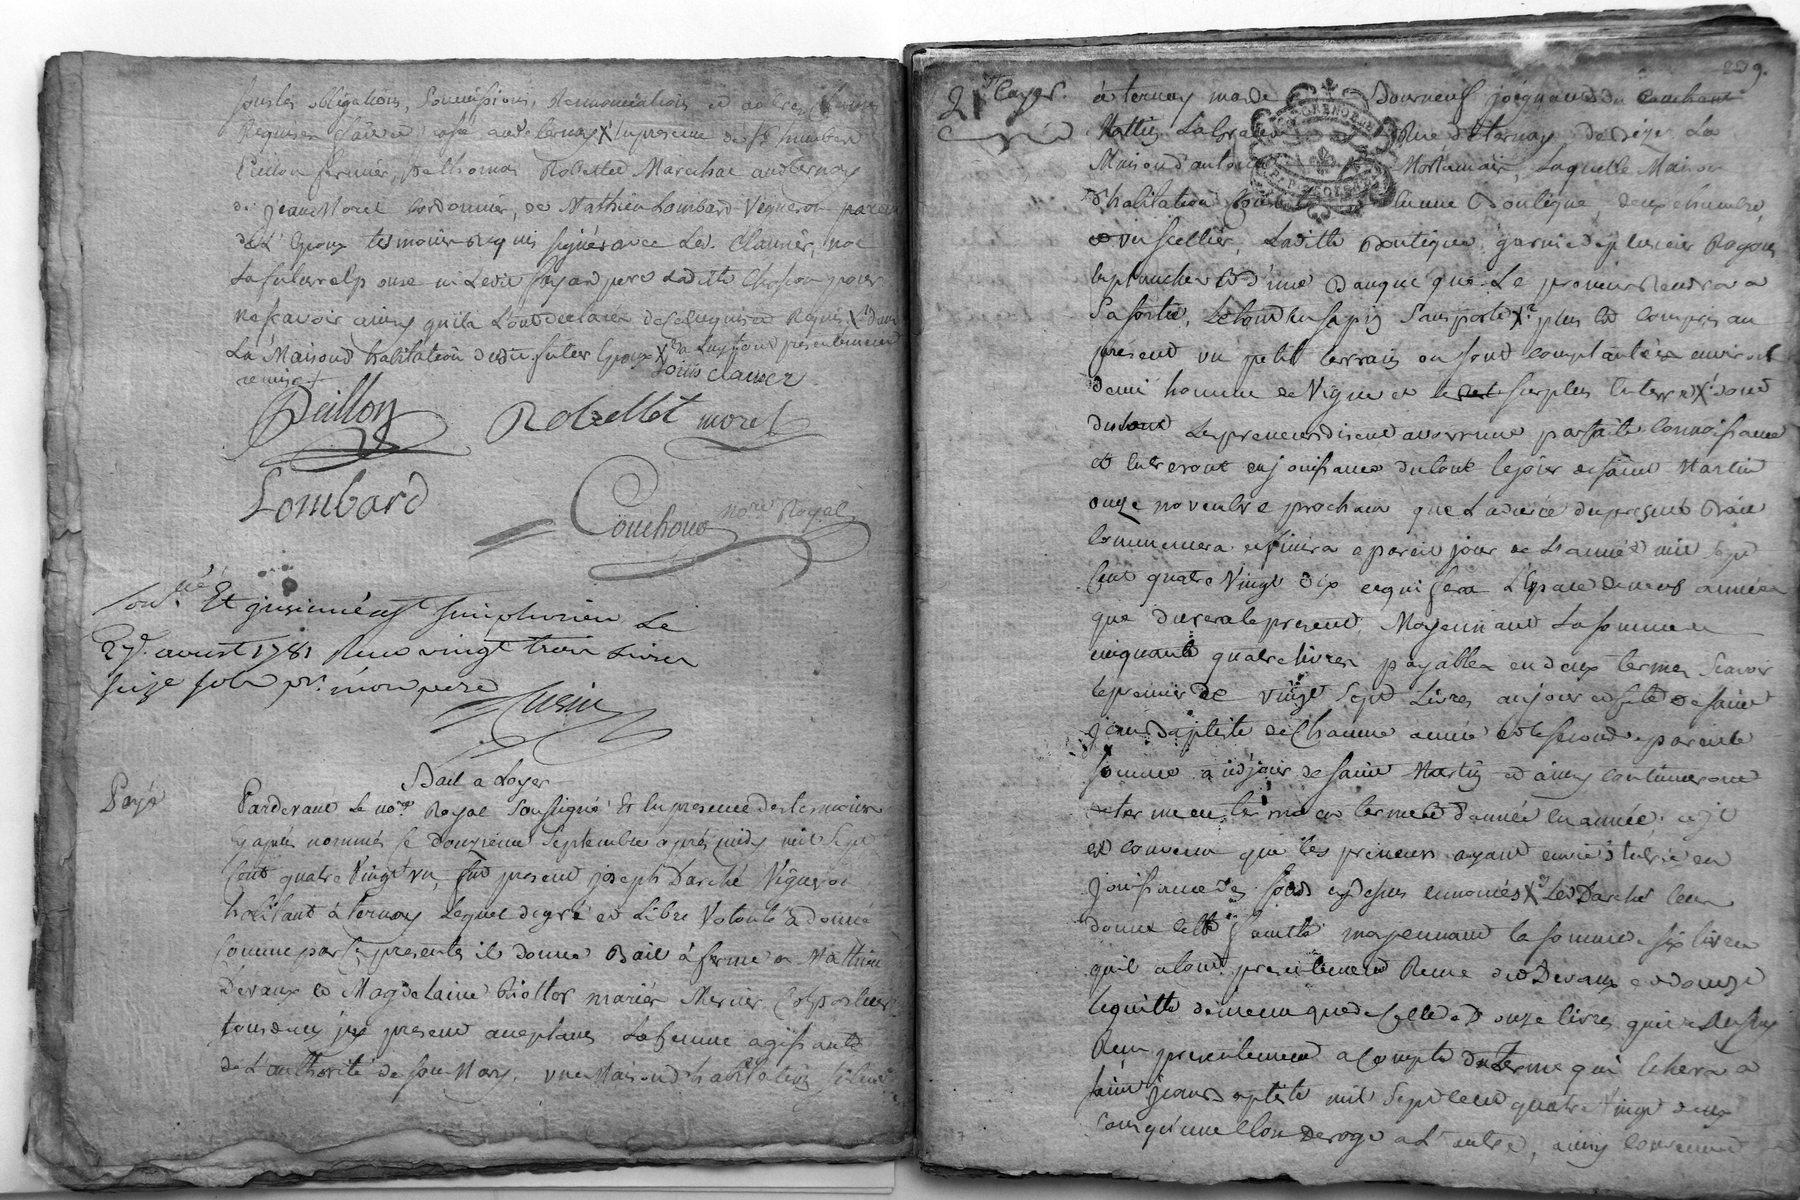 sous les obligations, soumissions, Renonciations et autres clauses
Requises fait et passé audit ternay X en presence de Sr humbert
Peillon fermier, De thomas Robellet Marechal audit ternay
de Jean Morel Cordonnier, de Mathieu Lombard Vigneron parent
de L'Epoux temoins requis signés avec Led. Claunér, non
La future Epouse ni Ledit père Ladite pour
ne sçavoir ainsy qu'ils L'ont declaré de ce enquis et Requis X dans
La Maison d'habitation dudit futur Epoux X presentement
remise +
Louis clauser
Peillon Robellet morel
Lombard Couchoud nore Royal
Conlé Et insinué a St simphorien Le
27 aoust 1781 Reçu vingt trois Livres
seize sols pr. mon pere
Cusin
Payé
Bail a Loyer
Pardevant le nore Royal soussigné Et en presence des temoins
cy après nommés le douzieme Septembre après midy mil Sept
Cent quatre Vingt un, fut present joseph Darché Vigneron
habitant à ternay lequel de gré et Libre Volonté a donné
comme par ces presentes il donne Bail à ferme a Mathieu
Devaux et Magdelaine mariés Mercier Colporteurs
tous deux icy present acceptans La femme agissante
de L'authorité de son Mary, une Maison d'habitation située
239.
21e Cayer.
à ternay mas de Bourneuf joignant du couchant
Mathieu La Grande Rue de ternay de Bize La
Maison d'antoine Mortamais, Laquelle Maison
d'habitation Consiste en une Boutique, deux chambres
et un scellier, Ladite Boutique garnie de plusieurs Rayons
en planches et d'une Banque que Le preneur Rendra a
Sa sortie, Le tout en sapin sans porte X plus est compris au
present un petit terrain ou sont complantées environ
demi homme de Vigne et le surplus en terre X dont
du tout Les preneurs disent avoir une parfaite connoissance
et entreront en jouissance du tout le jour de saint Martin
onze novembre prochain que La durée du present Bail
commencera et finira a pareil jour de L'année mil sept
Cent quatre Vingt dix ce qui fera L'Espace de neuf années
que durera le present, Moyennant La somme de
cinquante quatre livres payables en deux termes Scavoir
le premier de vingt Sept Livres au jour et fete de saint
jean Baptiste de Chaque année et le second de pareille
somme audit jour de saint Martin et ainsy continueront
de terme en terme et d'année en année. est
est convenu que les preneurs ayant envie d'entrer en
jouissance des fonds cy dessus ennoncés X Led Darché leur
donne cette faculté moyennant la somme six livres
qu'il a tout presentement Reçue dud Devaux et dont
le quitte de meme que de celle de onze livres qu'il a
Reçu presentement a Compte du terme qui echera a
saint jean Baptiste mil Sept Cent quatre Vingt deux
sans qu'une clause deroge a L'autre, ainsy convenu